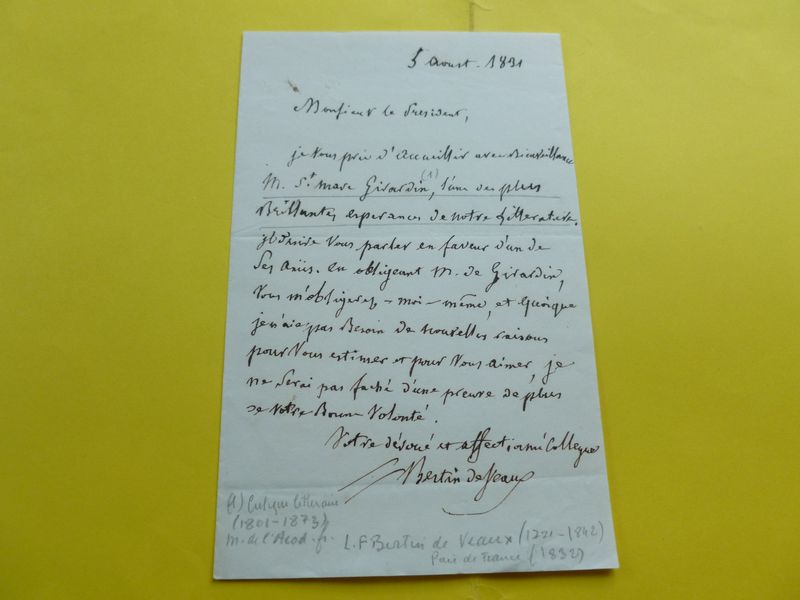 5 aoust. 1831
Monsieur le President,
je vous prie d'accueillir avec Bienveillance
M. St marc Girardin, (1) l'une des plus
Brillantes esperances de notre litterature.
il desire vous parler en faveur d'un de
ses amis. en obligeant M. de Girardin,
vous m'obligerez - moi - même, et quoique
je n'aie pas Besoin de nouvelles raisons
pour vous estimer et pour vous aimer, je
ne serai pas faché d'une preuve de plus
de votre Bonne volonté.
Votre dévoué et affectionné Collegue
Bertin deVeaux
(1) Critique litteraire
(1801-1873)
m. de l'Acad. fr.
L. F Bertin de Veaux (1771-1842)
Pair de France (1832)